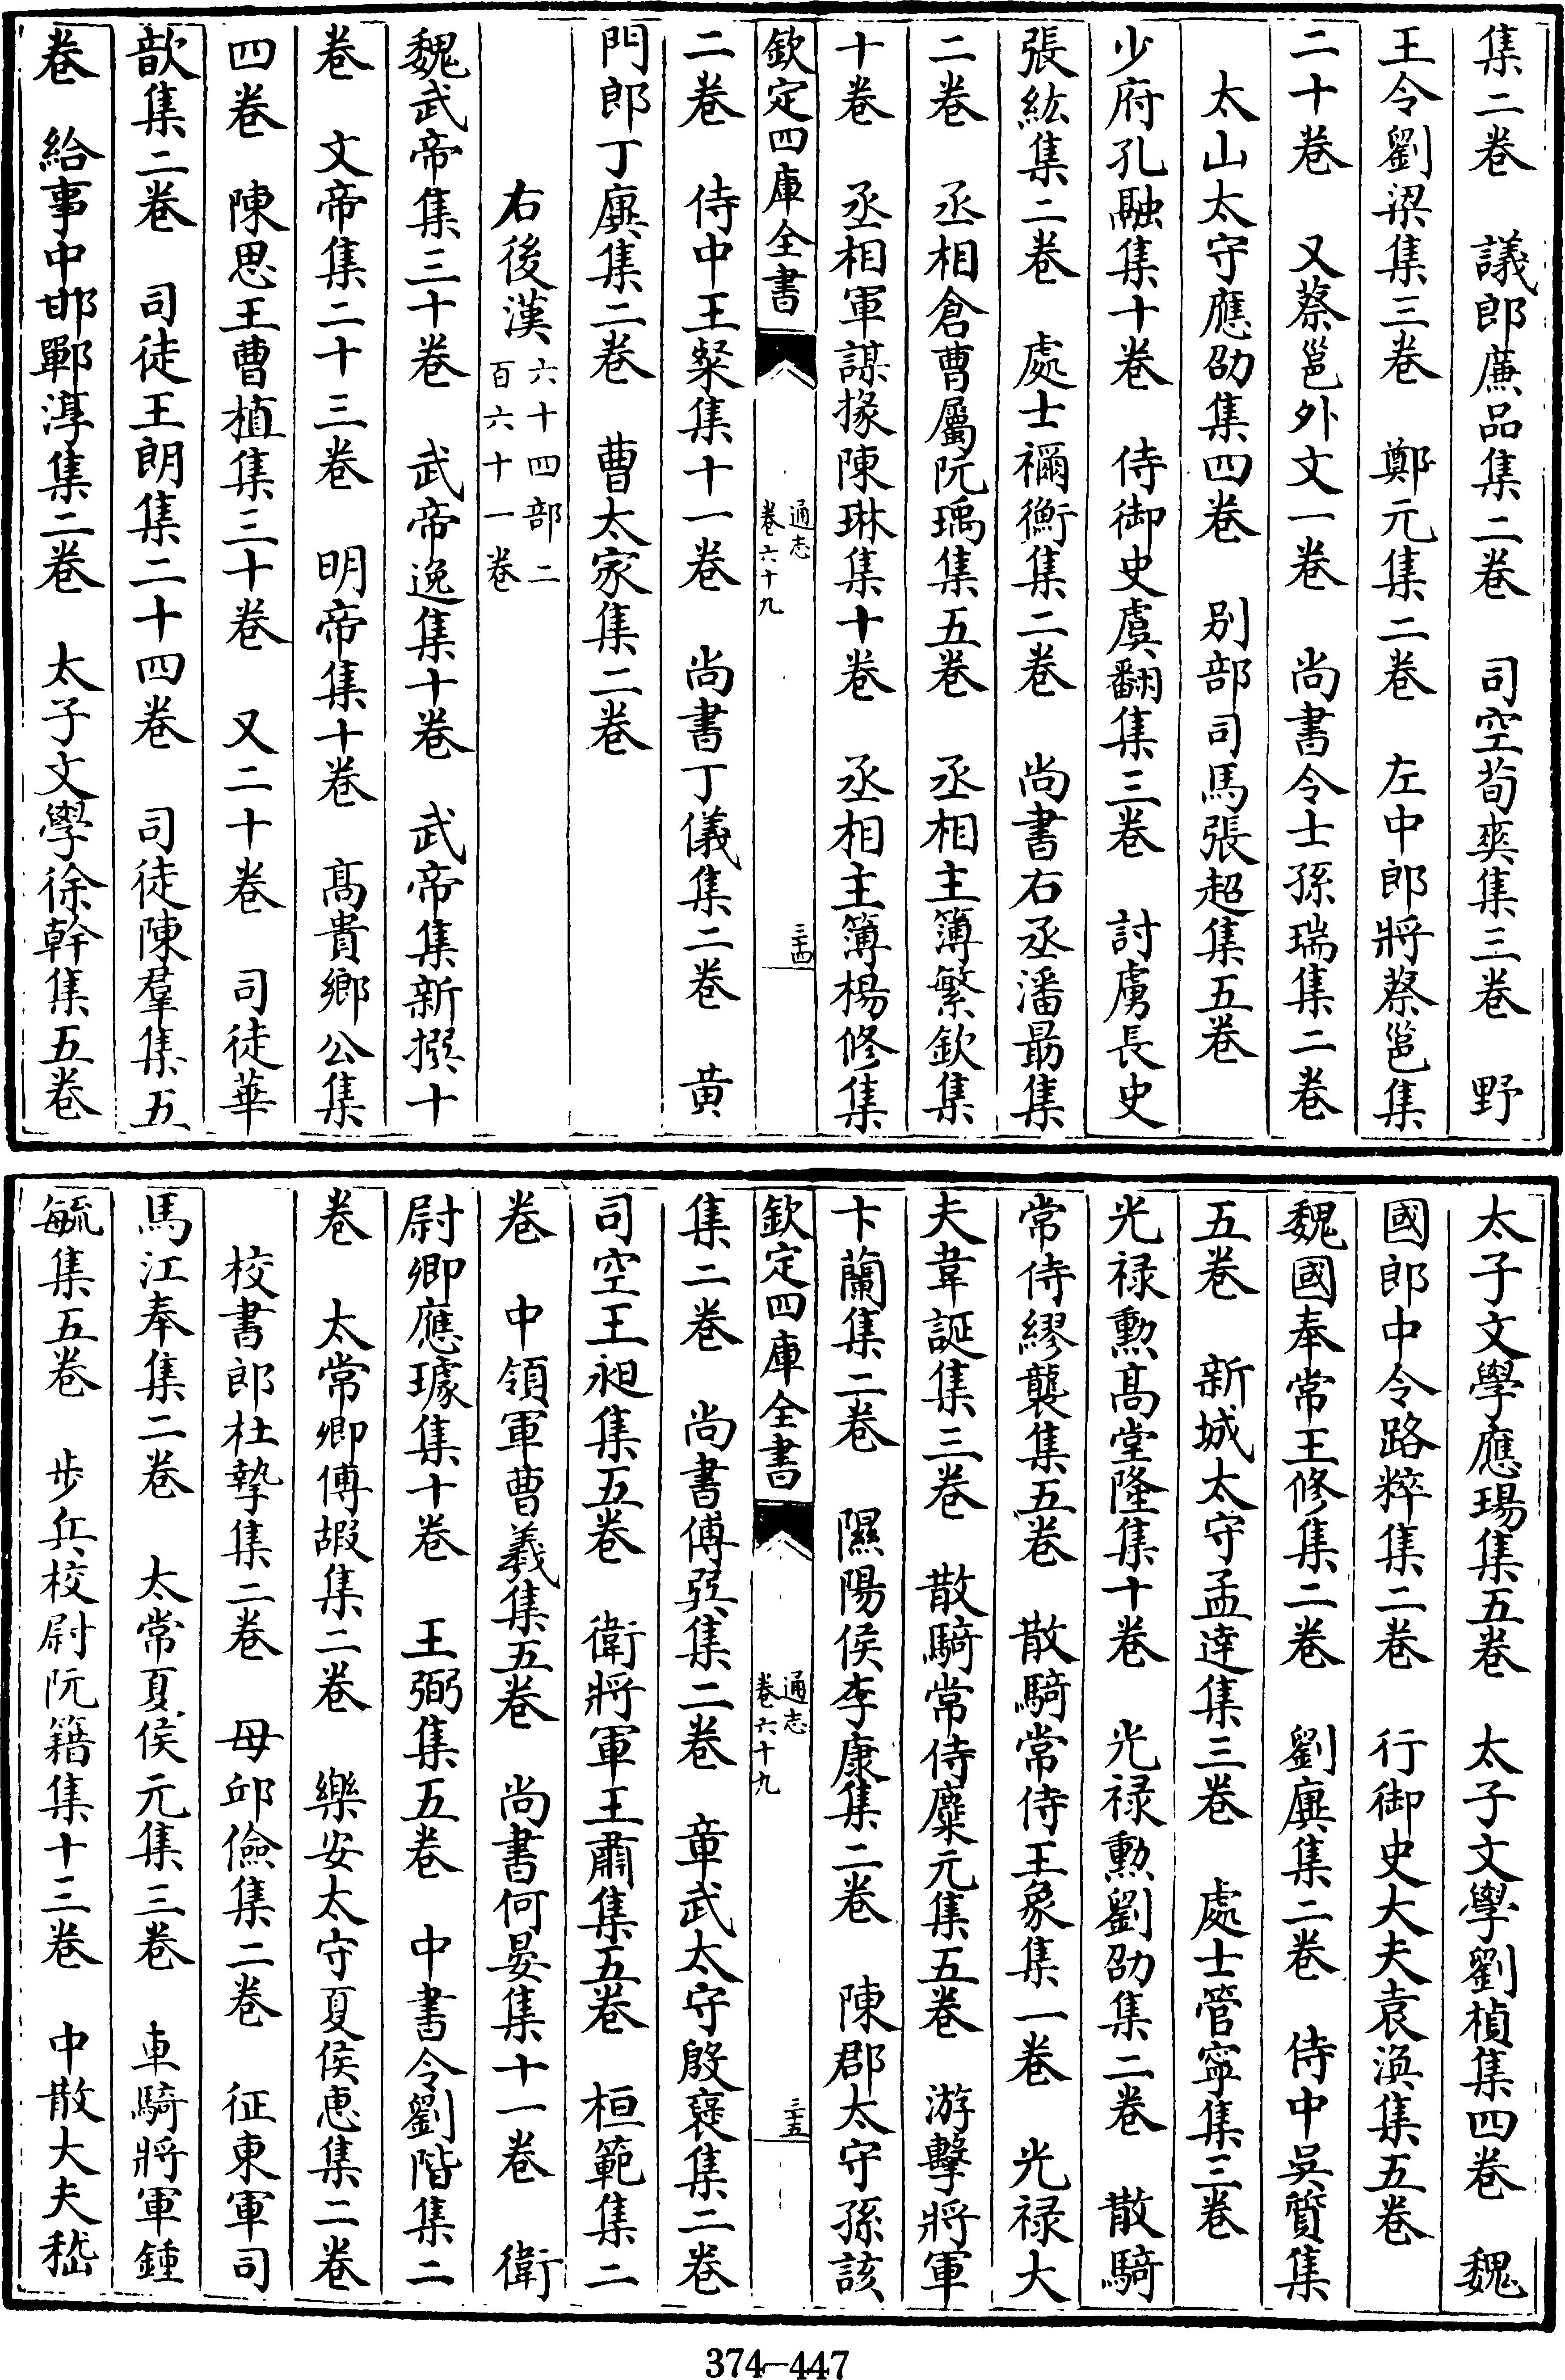 集二卷　議郎廉品集二卷　司空荀爽集三卷　野
王令劉梁集三卷　鄭元集二卷　左中郎將蔡邕集
二十卷　又蔡邕外文一卷　尚書令士孫瑞集二卷
太山太守應劭集四卷　別部司馬張超集五卷
少府孔融集十卷　侍御史虞翻集三卷　討虜長史
張紘集二卷　處士禰衡集二卷　尚書右丞潘勗集
二卷　丞相倉曹屬阮瑀集五卷　丞相主簿繁欽集
十卷　丞相軍謀掾陳琳集十卷　丞相主簿楊修集
欽定四庫全書　通志卷六十九　三十四
二卷　侍中王粲集十一卷　尚書丁儀集二卷　黄
門郎丁廙集二卷　曹太家集二卷
右後漢六十四部二百六十一卷
魏武帝集三十卷　武帝逸集十卷　武帝集新撰十
卷　文帝集二十三卷　明帝集十卷　髙貴鄉公集
四卷　陳思王曹植集三十卷　又二十卷　司徒華
歆集二卷　司徒王朗集二十四卷　司徒陳羣集五
卷　給事中邯鄲淳集二卷　太子文學徐幹集五卷
太子文學應瑒集五卷　太子文學劉楨集四卷　魏
國郎中令路粹集二卷　行御史大夫袁渙集五卷
魏國奉常王修集二卷　劉廙集二卷　侍中吳質集
五卷　新城太守孟達集三卷　處士管寧集三卷
光禄勲髙堂隆集十卷　光禄勲劉劭集二卷　散騎
常侍繆襲集五卷　散騎常侍王象集一卷　光禄大
夫韋誕集三卷　散騎常侍麋元集五卷　游擊將軍
卞蘭集二卷　隰陽侯李康集二卷　陳郡太守孫該
欽定四庫全書　通志卷六十九　三十五
集二卷　尚書傅巽集二卷　章武太守殷褒集二卷
司空王昶集五卷　衛將軍王肅集五卷　桓範集二
卷　中領軍曹羲集五卷　尚書何晏集十一卷　衛
尉卿應璩集十卷　王弼集五卷　中書令劉階集二
卷　太常卿傅嘏集二卷　樂安太守夏侯惠集二卷
校書郎杜摯集二卷　毋邱儉集二卷　征東軍司
馬江奉集二卷　太常夏侯元集三卷　車騎將軍鍾
毓集五卷　步兵校尉阮籍集十三卷　中散大夫嵇
374-447